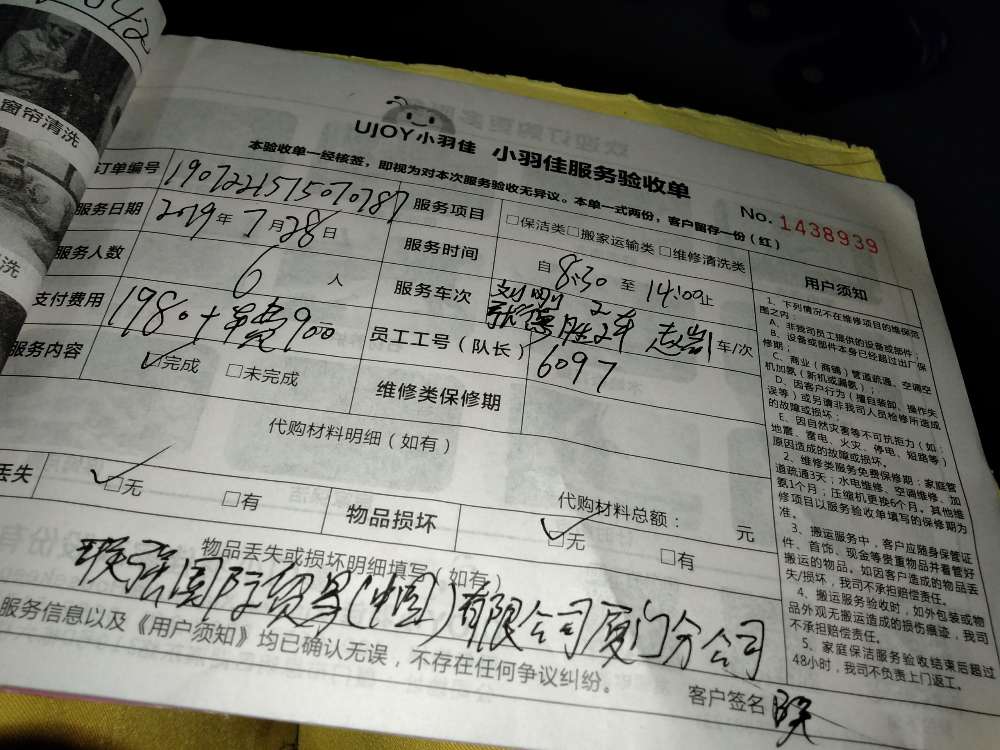 窗帘清洗
洗
UJOY小羽佳 小羽佳服务验收单
本验收单一经核签，即视为对本次服务验收无异议。本单一式两份，客户留存一份（红）
No. 1438939
订单编号 1907221515070787 服务项目 □保洁类□搬家运输类□维修清洗类
服务日期 2019年7月28日 服务时间 自8:30至14:00止
服务人数 6人 服务车次 2车 车/次
支付费用 1980+ 900 员工工号（队长） 6097
服务内容 ✓□完成 □未完成 维修类保修期
代购材料明细（如有）
代购材料总额： 元
丢失 ✓□无 □有 物品损坏 ✓□无 □有
物品丢失或损坏明细填写（如有）
联强国际贸易(中国)有限公司厦门分公司
服务信息以及《用户须知》均已确认无误，不存在任何争议纠纷。
客户签名
用户须知
1、下列情况不在维修项目的维保范
围之内：
A、非我司员工提供的设备或部件；
B、设备或部件本身已经超过出厂保
修期；
C、商业（商铺）管道疏通、空调空
机加氨（新机或漏氨）；
D、因客户行为（擅自装卸、操作失
误等）或另请非我司人员检修所造成
的故障或损坏；
E、因自然灾害等不可抗拒力（如：
地震、雷电、火灾、停电、短路等）
原因造成的故障或损坏。
2、维修类服务免费保修期：家庭管
道疏通3天；水电维修、空调维修、加
氨1个月；压缩机更换6个月。其他维
修项目以服务验收单填写的保修期为
准。
3、搬运服务中，客户应随身保管证
件、首饰、现金等贵重物品并看管好
搬运的物品。如因客户造成的物品丢
失/损坏，我司不承担赔偿责任。
4、搬运服务验收时，如外包装或物
品外观无搬运造成的损伤痕迹，我司
不承担赔偿责任。
5、家庭保洁服务验收结束后超过
48小时，我司不负责上门返工。